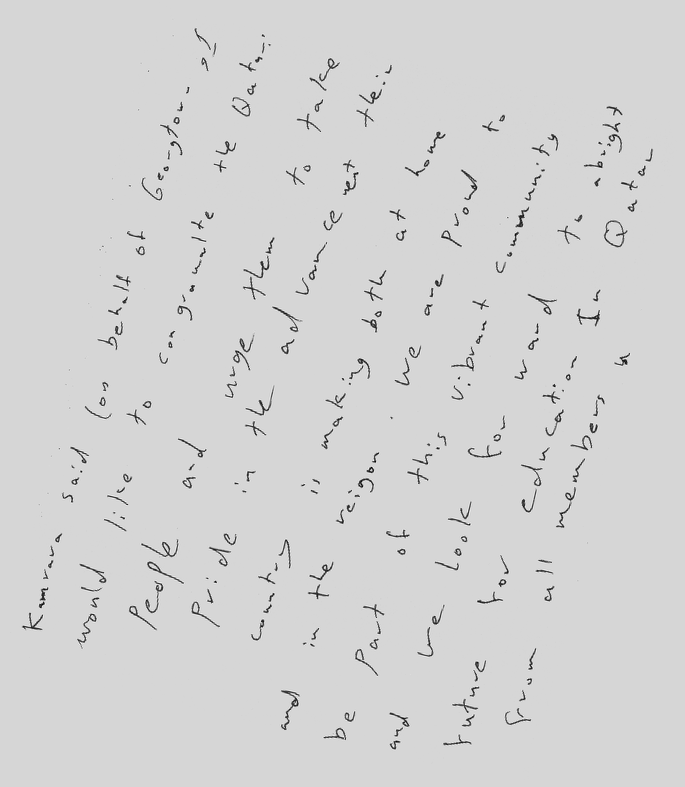 Kamrava said (on behalf of Georgtown, I
would like to congranalte the Qatari
People and urge them to take
Pride in the advancement their
country is making both at home
and in the reigon. we are Proud to
be Part of this vibrant community
and we look forward to abright
future for education In Qatar
from all members